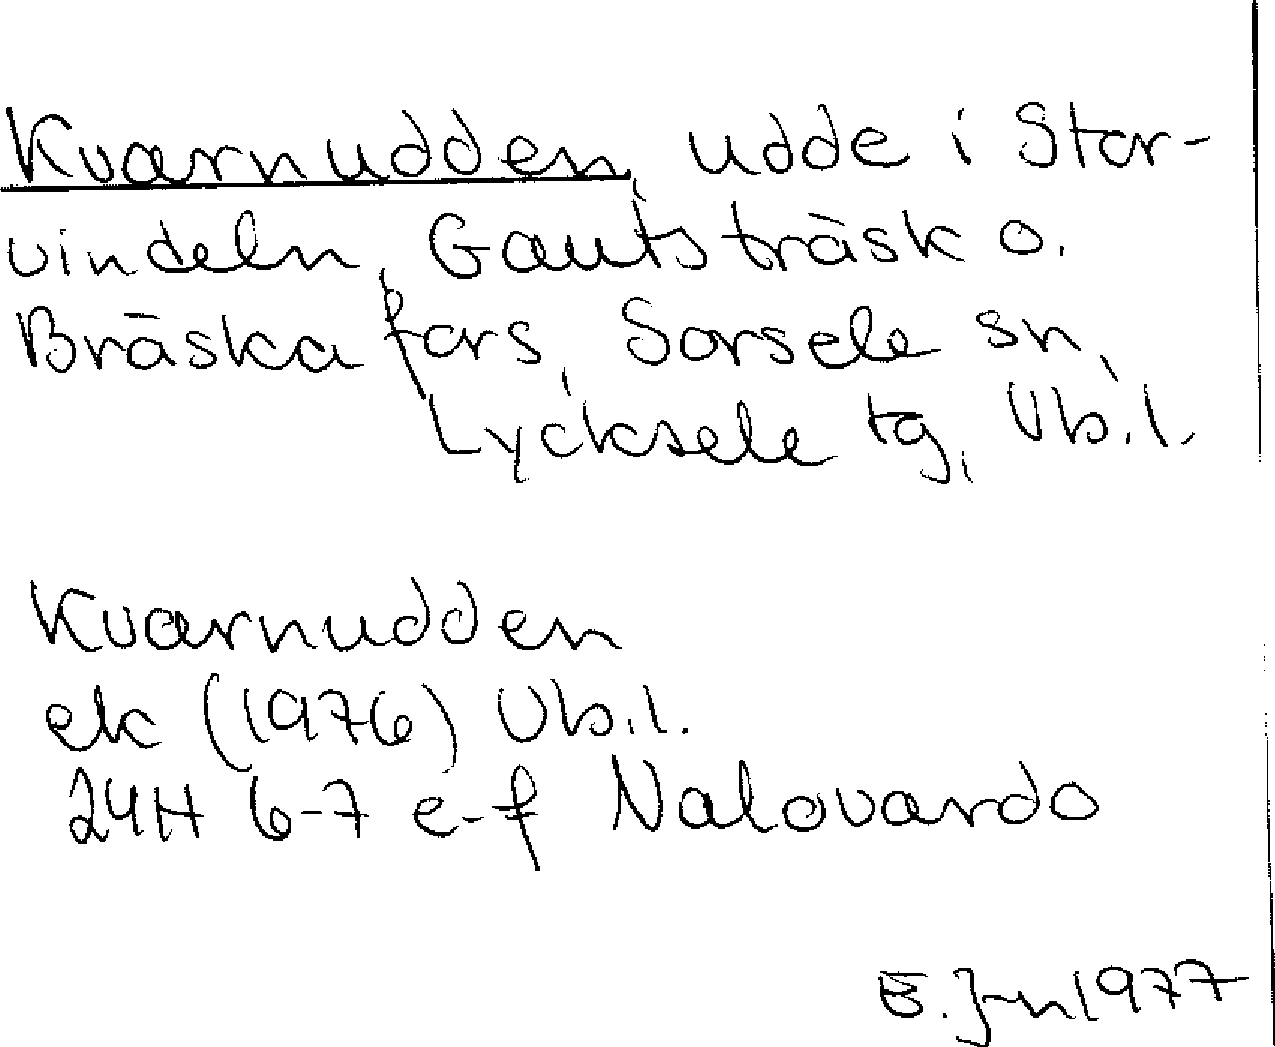 Kvarnudden, udde i Stor-
vindeln, Gautsträsk o.
Bräska fors, Sorsele sn,
Lycksele tg, Vb.l.
Kvarnudden
ek (1976) Vb.l.
24H 6-7 e-f Nalovardo
E. J-n 1977